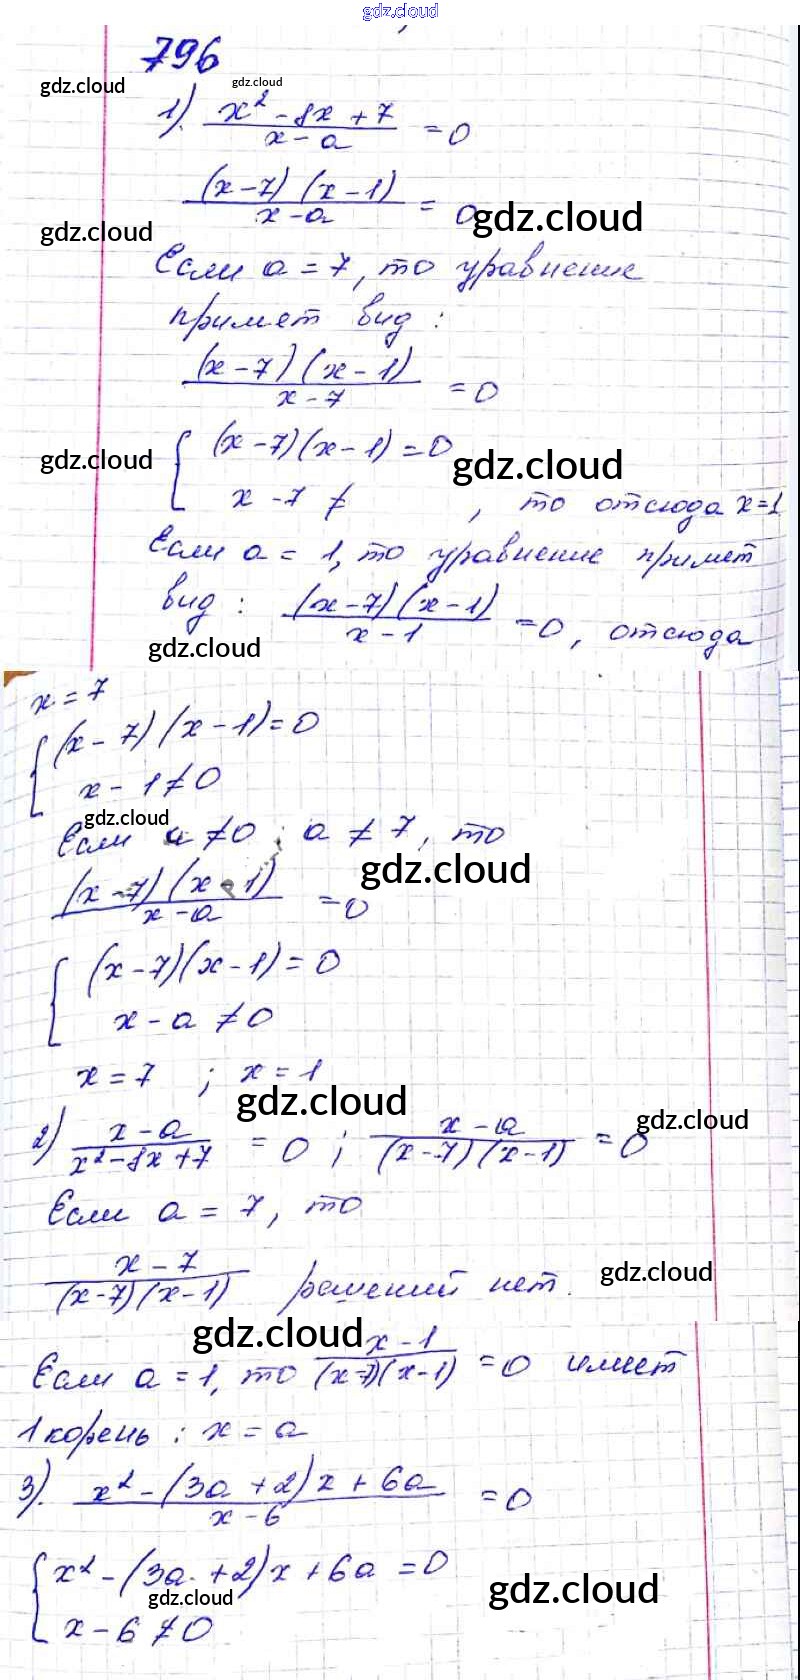 gdz.cloud
796
gdz.cloud gdz.cloud
1). (x² - 8x + 7)/(x - a) = 0
((x-7)(x-1))/(x-a) = 0 gdz.cloud
gdz.cloud
Если a = 7, то уравнение
примет вид:
((x-7)(x-1))/(x-7) = 0
{ (x-7)(x-1) = 0 gdz.cloud
gdz.cloud
x - 7 ≠ , то отсюда x=1
Если a = 1, то уравнение примет
вид: ((x-7)(x-1))/(x-1) = 0, отсюда
gdz.cloud
x = 7
{ (x-7)(x-1) = 0
x - 1 ≠ 0
gdz.cloud
Если a ≠ 0; a ≠ 7, то
gdz.cloud
((x-7)(x-1))/(x-a) = 0
{ (x-7)(x-1) = 0
x - a ≠ 0
x = 7 ; x = 1
gdz.cloud
2) (x-a)/(x²-8x+7) = 0 ; (x-a)/((x-7)(x-1)) = 0
gdz.cloud
Если a = 7, то
(x-7)/((x-7)(x-1)) решений нет.
gdz.cloud
gdz.cloud
Если a = 1, то (x-1)/((x-7)(x-1)) = 0 имеет
1 корень: x = a
3). (x² - (3a + 2)x + 6a)/(x-6) = 0
{ x² - (3a + 2)x + 6a = 0
gdz.cloud gdz.cloud
x - 6 ≠ 0